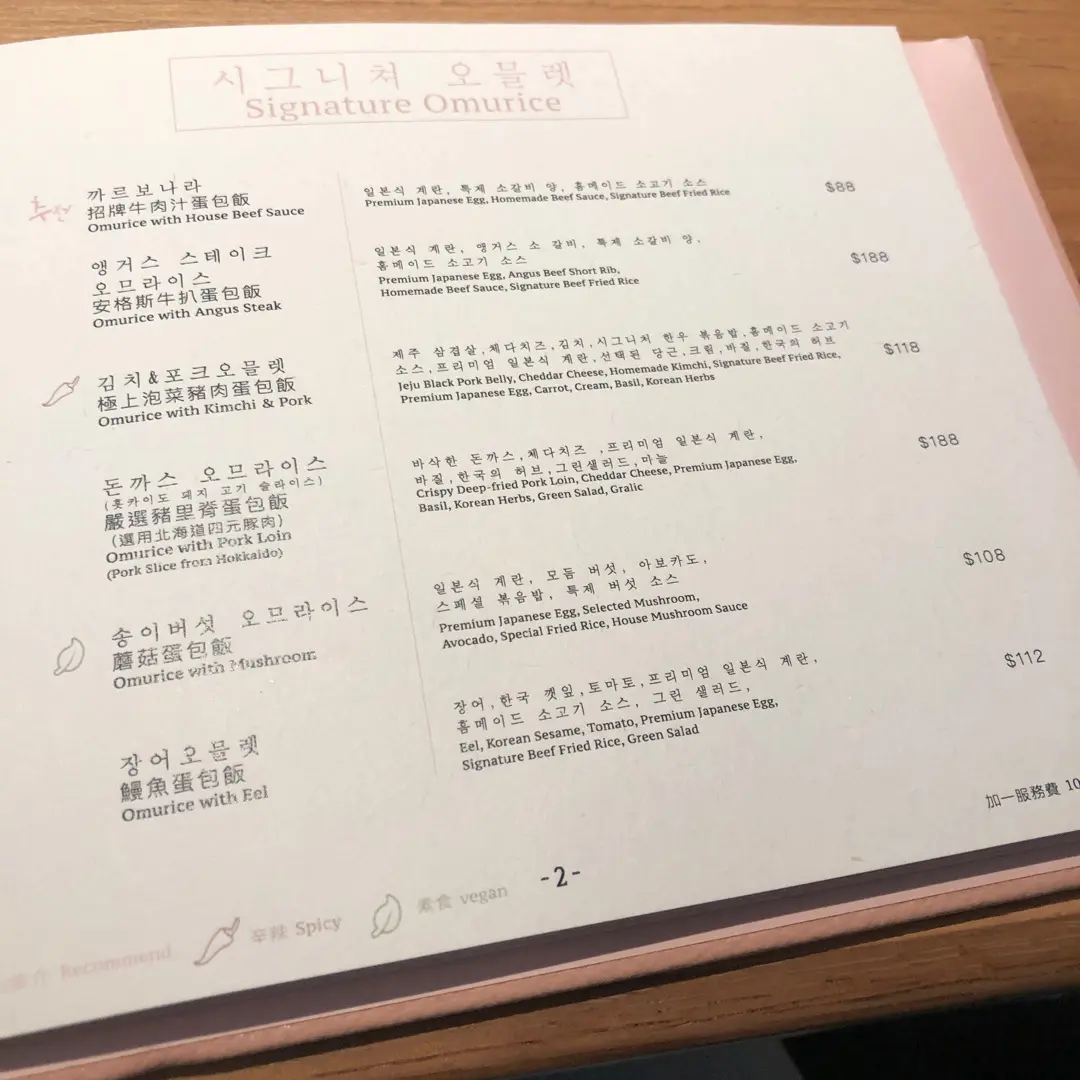 시그니쳐 오믈렛
Signature Omurice
추천
까르보나라
招牌牛肉汁蛋包飯
Omurice with House Beef Sauce
일본식 계란, 특제 소갈비 양, 홈메이드 소고기 소스
Premium Japanese Egg, Homemade Beef Sauce, Signature Beef Fried Rice
$88
앵거스 스테이크
오므라이스
安格斯牛扒蛋包飯
Omurice with Angus Steak
일본식 계란, 앵거스 소 갈비, 특제 소갈비 양,
홈메이드 소고기 소스
Premium Japanese Egg, Angus Beef Short Rib,
Homemade Beef Sauce, Signature Beef Fried Rice
$188
김치&포크오믈렛
極上泡菜豬肉蛋包飯
Omurice with Kimchi & Pork
제주 삼겹살,체다치즈,김치,시그니처 한우 볶음밥,홈메이드 소고기
소스,프리미엄 일본식 계란,선택된 당근,크림,바질,한국의 허브
Jeju Black Pork Belly, Cheddar Cheese, Homemade Kimchi, Signature Beef Fried Rice,
Premium Japanese Egg, Carrot, Cream, Basil, Korean Herbs
$118
돈까스 오므라이스
(홋카이도 돼지 고기 슬라이스)
嚴選豬里脊蛋包飯
(選用北海道四元豚肉)
Omurice with Pork Loin
(Pork Slice from Hokkaido)
바삭한 돈까스,체다치즈 ,프리미엄 일본식 계란,
바질,한국의 허브,그린샐러드,마늘
Crispy Deep-fried Pork Loin, Cheddar Cheese, Premium Japanese Egg,
Basil, Korean Herbs, Green Salad, Gralic
$188
송이버섯 오므라이스
蘑菇蛋包飯
Omurice with Mushroom
일본식 계란, 모듬 버섯, 아보카도,
스페셜 볶음밥, 특제 버섯 소스
Premium Japanese Egg, Selected Mushroom,
Avocado, Special Fried Rice, House Mushroom Sauce
$108
장어오믈렛
鰻魚蛋包飯
Omurice with Eel
장어,한국 깻잎,토마토,프리미엄 일본식 계란,
홈메이드 소고기 소스, 그린 샐러드,
Eel, Korean Sesame, Tomato, Premium Japanese Egg,
Signature Beef Fried Rice, Green Salad
$112
加一服務費 10
-2-
介 Recommend
辛辣 Spicy
素食 vegan